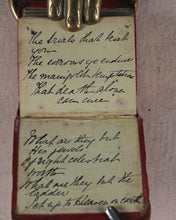 "The trials that beset
you
The sorrows ye endure
The manifold temptations
That death alone
can cure
What are they but
His jewels
Of right celestial
worth
What are they but the
ladder
Set up to heaven on earth